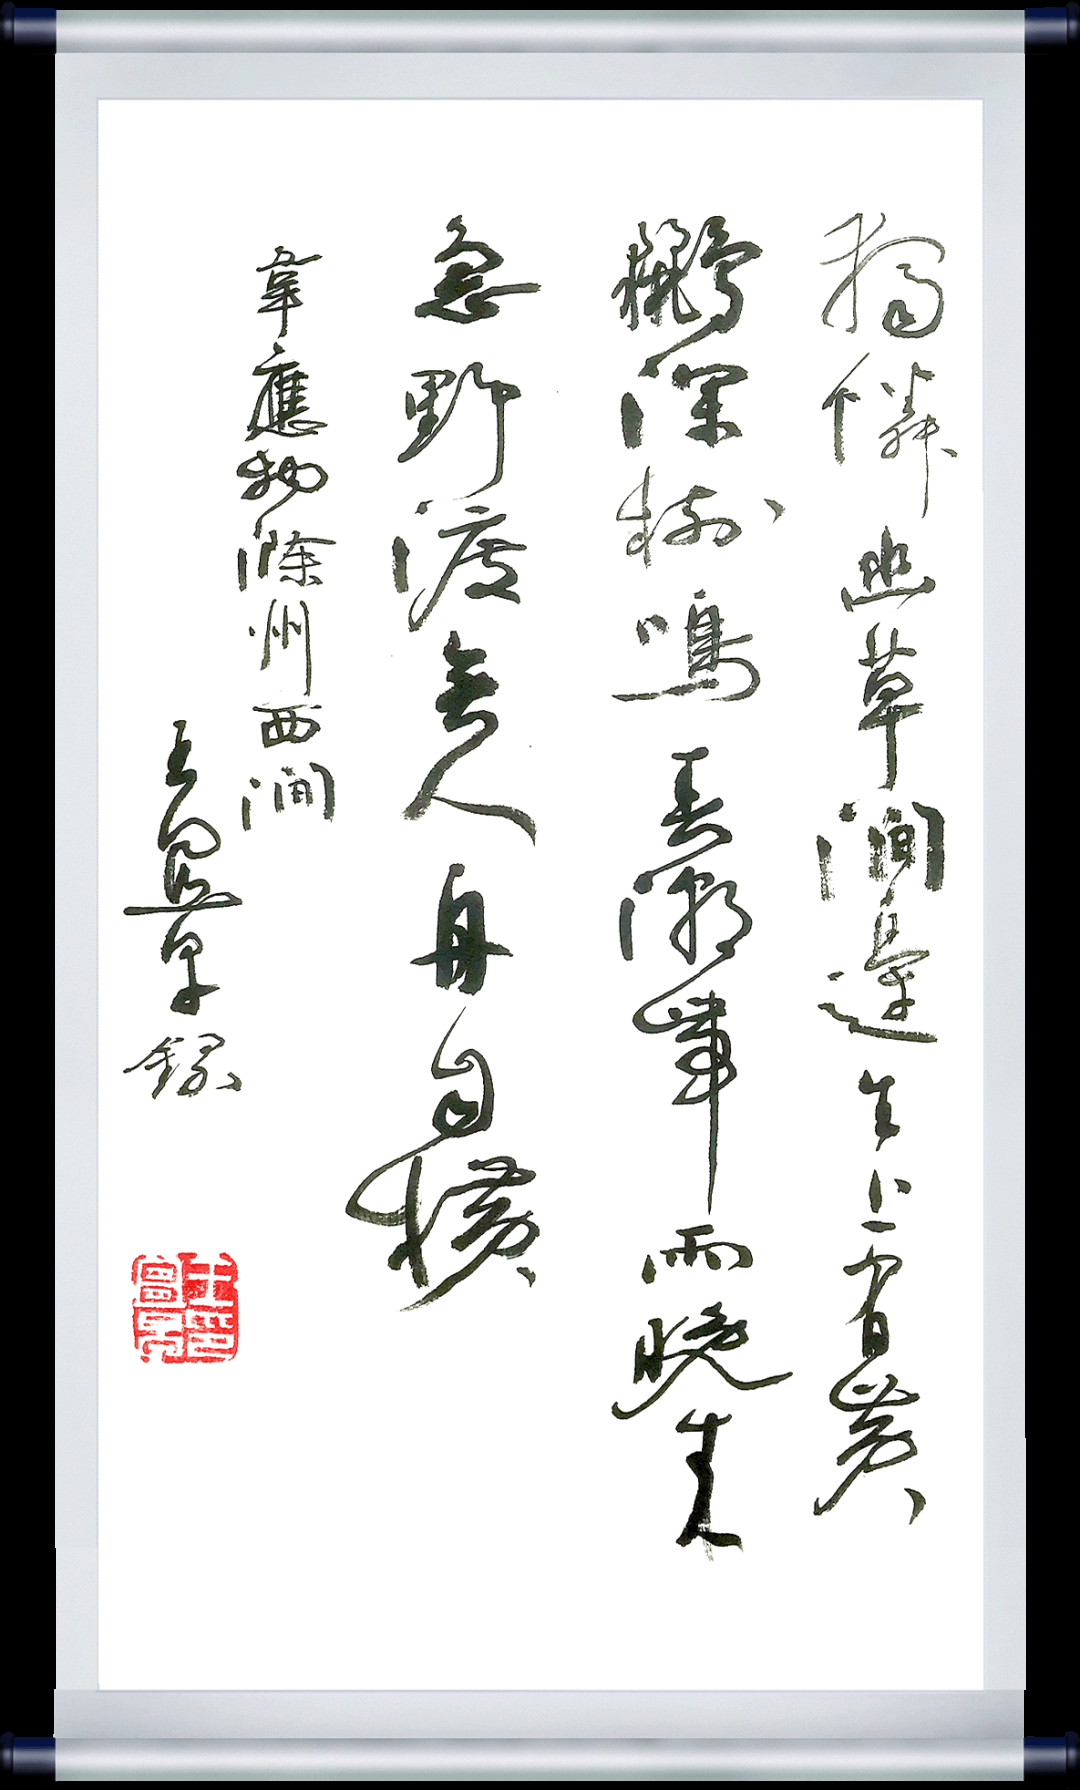 獨憐幽草澗邊生上有黄
鸝深樹鳴春潮帶雨晚来
急野渡無人舟自橫
韋應物滁州西澗
王 錄